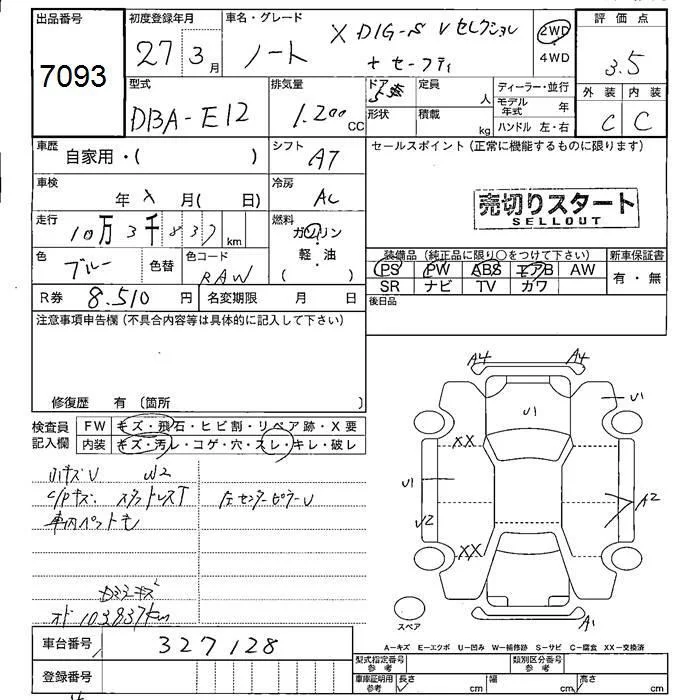 出品番号 7093
初度登録年月 27 3月
車名・グレード ノート X DIG-S Vセレクション
+ セーフティ
2WD
・
4WD
評価点 3.5
外装 内装
C C
型式 DBA-E12
排気量 1.200 CC
ドア 5
形状
定員 人
積載 kg
ディーラー・並行
モデル年式 年
ハンドル 左・右
車歴 自家用・( )
シフト AT
セールスポイント(正常に機能するものに限ります)
車検 年 月( 日)
冷房 AC
売切りスタート
SELLOUT
走行 10万3千837km
燃料 ガソリン
軽・油
( )
色 ブルー 色替
色コード RAW
装備品(純正品に限り○をつけて下さい) 新車保証書
PS PW ABS エアB AW 有・無
SR ナビ TV カワ
R券 8.510円 名変期限 月 日
後日品
注意事項申告欄(不具合内容等は具体的に記入して下さい)
修復歴 有 (箇所 )
検査員記入欄
FW キズ・飛石・ヒビ割・リペア跡・X要
内装 キズ・汚レ・コゲ・穴・スレ・キレ・破レ
小キズU W2
C/Pキズ. スタットレスT
左センターピラーU
車内ペット毛
オド 103837km
A4 A4
U1
U1
XX
U1
U2
A2
XX
A1
スペア
車台番号 327128
登録番号
A-キズ E-エクボ U-凹み W-補修跡 S-サビ C-腐食 XX-交換済
型式指定番号 参考
類別区分番号 参考
車庫証明用 参考
長さ cm
幅 cm
高さ cm